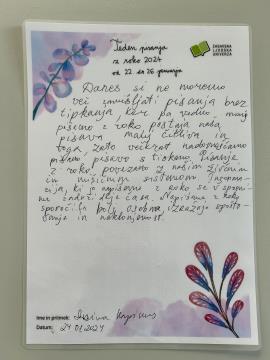 Teden pisanja
z roko 2024
od 22. do 26. januarja
ZASAVSKA
LJUDSKA
UNIVERZA
Danes si ne moremo
več zamišljati pisanja brez
tipkanja, ker pa vedno manj
pišemo z roko postaja naša
pisava manj čitljiva in
tega, zato večkrat nadomeščamo
pisavo s tiskano. Pisanje
z roko povezano z našim živčnim
in mišičnim sistemom. Informa-
cija, ki je napisana z roko se v spomi-
nu zadrži dlje časa. Napisana z roko
sporočila bolj osebna izražajo spošto-
vanje in naklonjenost.
Ime in priimek:
Datum: 24.01.2024